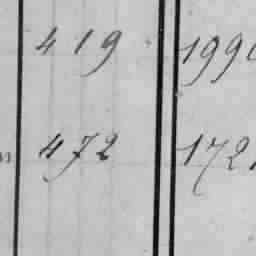 419 199
472 172